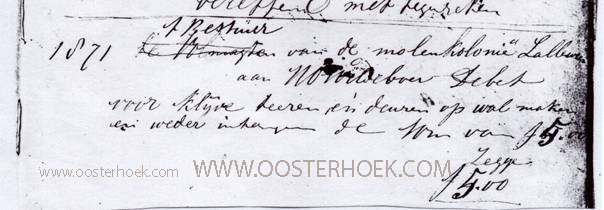 vereffend met begrooten
t Bestuur
1871 de Voormagten van de molenkolonie Lalleweer
aan N O Wildeboer Debet
voor klijve teeren en deuren op wal maken
en weder inhangen de som van f 5.00
Zegge
f 5.00
www.oosterhoek.com WWW.OOSTERHOEK.COM